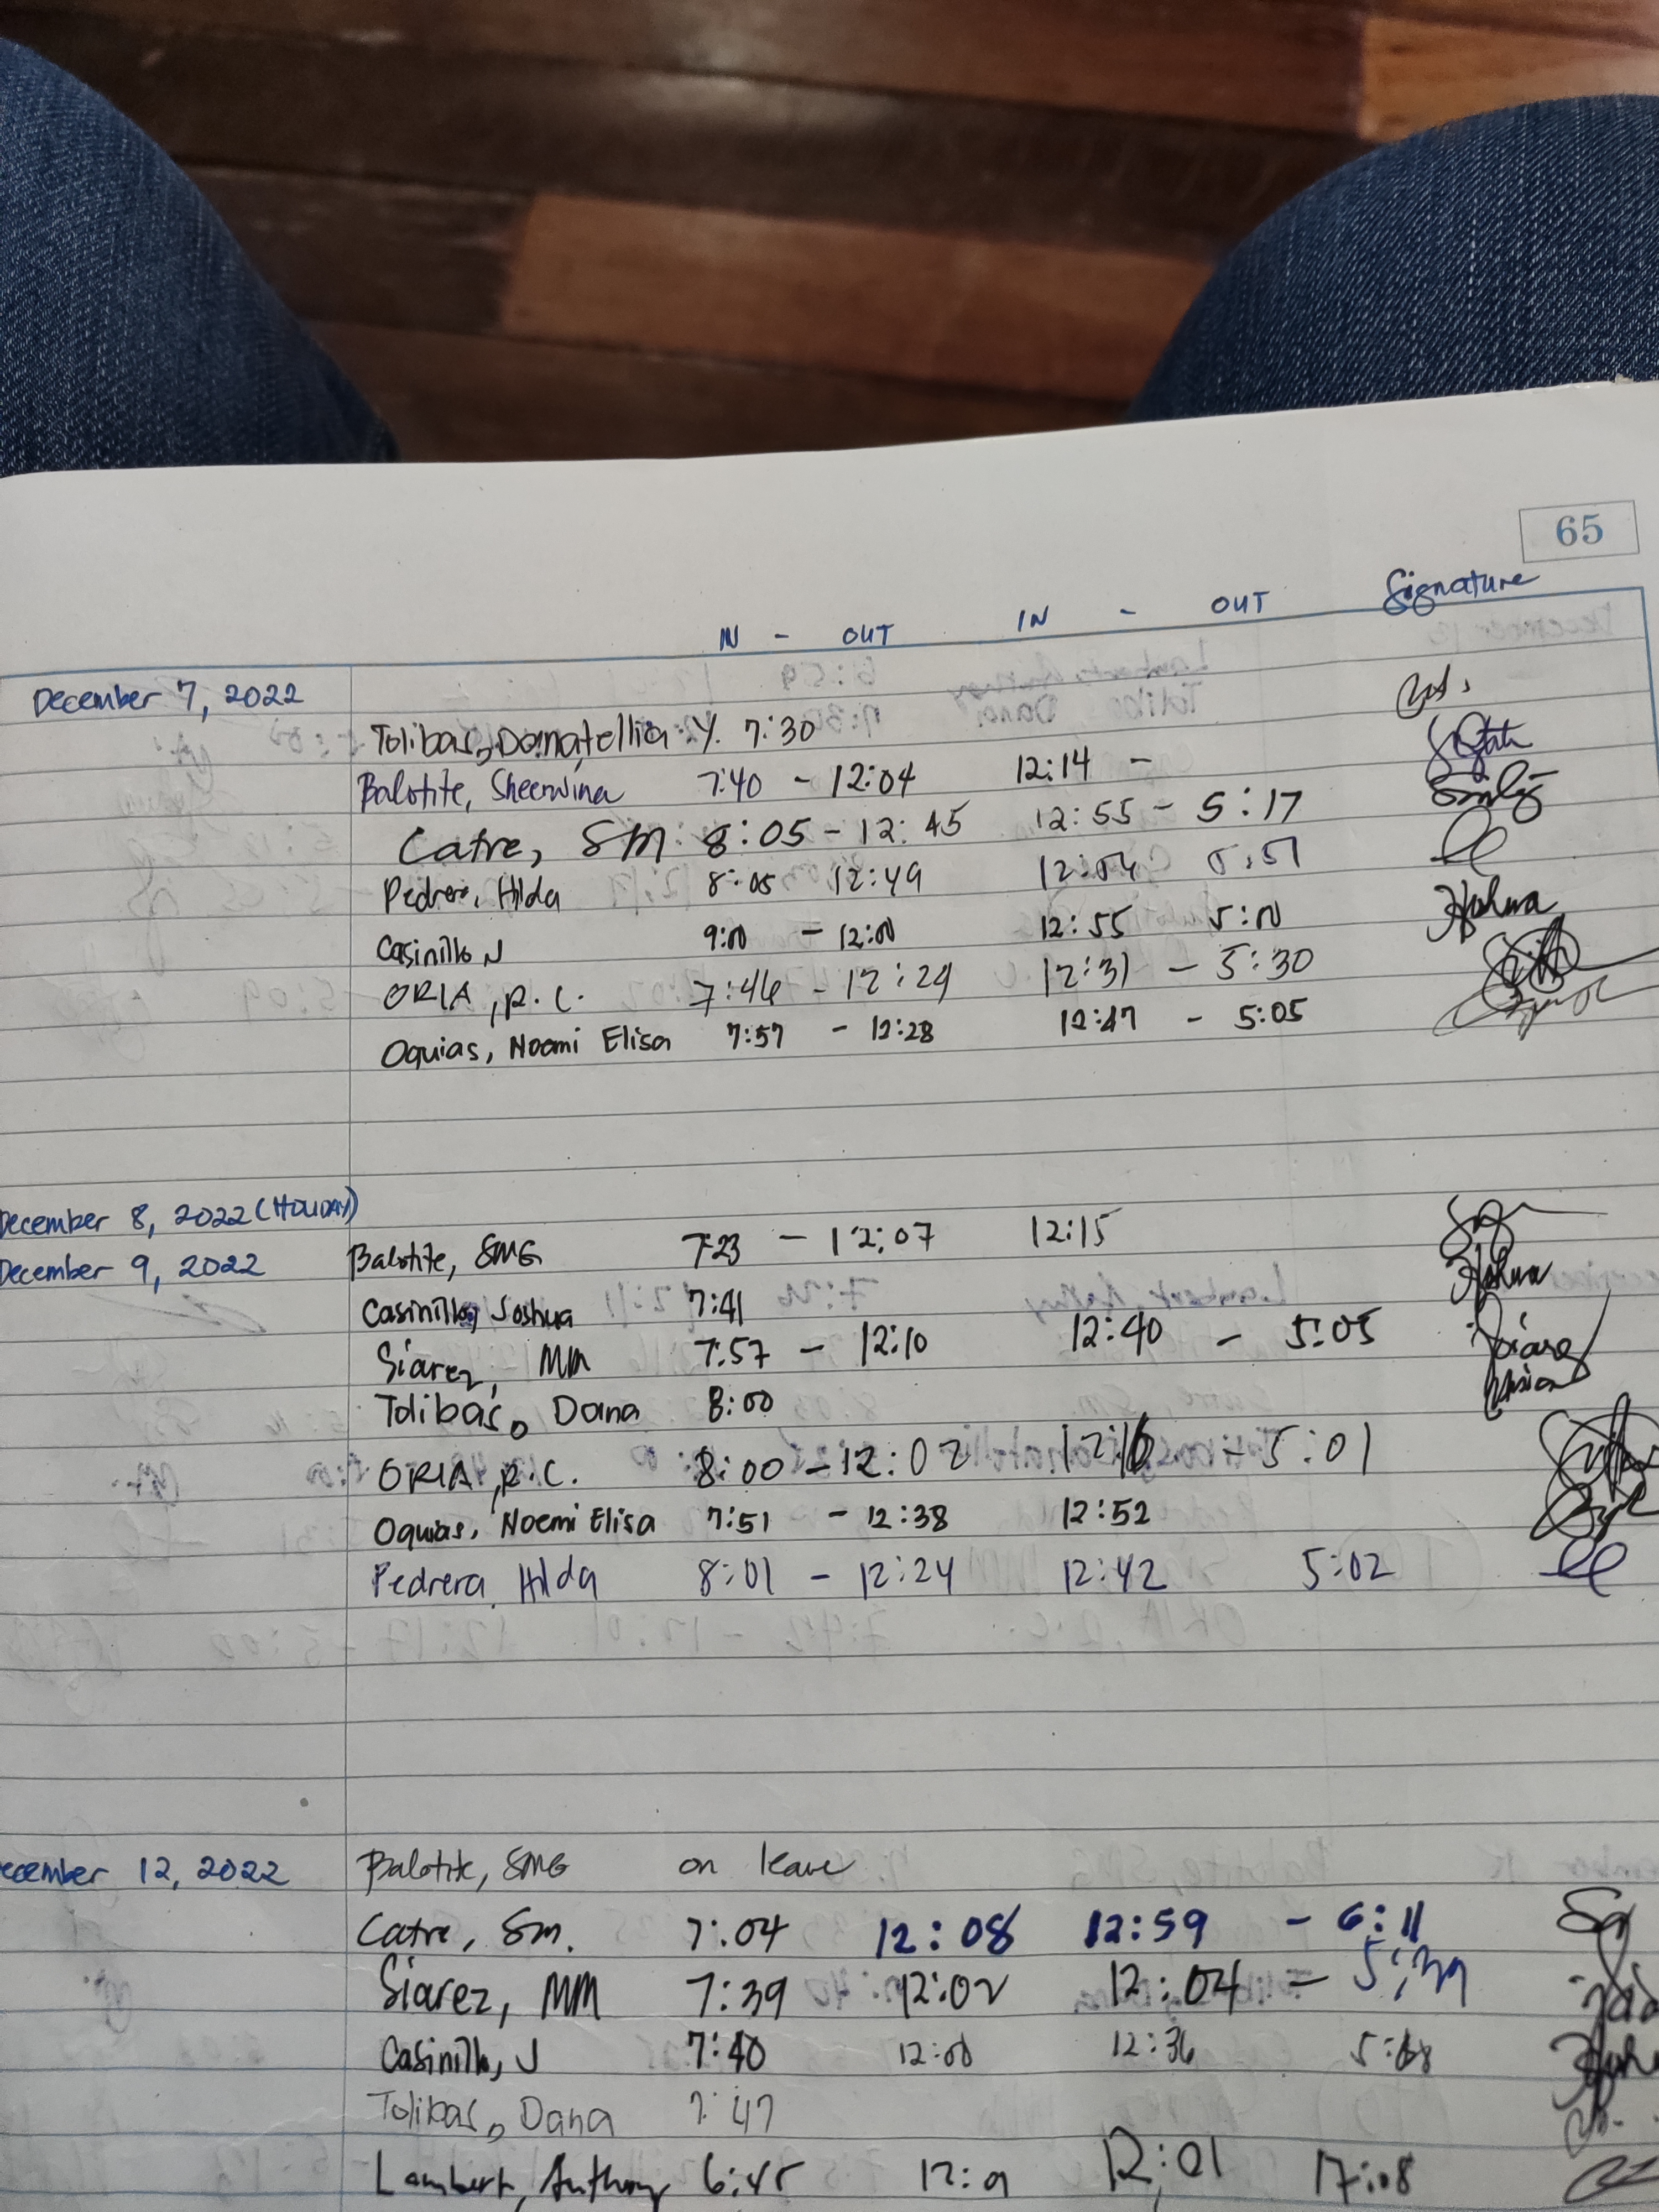 65
IN - OUT IN - OUT Signature
December 7, 2022
Tolibas, Donatellia Y. 7:30
Balotite, Sheerwina 7:40 - 12:04 12:14 -
Catre, SM 8:05 - 12:45 12:55 - 5:17
Pedrera, Hilda 8:05 12:49 12:54 5:51
Casinillo J 9:00 - 12:00 12:55 5:00
ORIA, R.C. 7:46 - 12:29 12:31 - 5:30
Oquias, Noemi Elisa 7:57 - 12:28 12:47 - 5:05
December 8, 2022 (HOLIDAY)
December 9, 2022 Balotite, SMG 7:23 - 12:07 12:15
Casinillo, Joshua 7:41
Siarez, MM 7:57 - 12:10 12:40 - 5:05
Tolibas, Dana 8:00
ORIA, R.C. 8:00 - 12:02 12:16 - 5:01
Oquias, Noemi Elisa 7:51 - 12:38 12:52
Pedrera, Hilda 8:01 - 12:24 12:42 5:02
ecember 12, 2022 Balotite, SMG on leave
Catre, Sm. 7:04 12:08 12:59 - 6:11
Siarez, MM 7:39 12:02 12:04 - 5:39
Casinillo, J 7:40 12:00 12:36
Tolibas, Dana 7:47
Lambert, Anthony 6:45 12:01 17:08